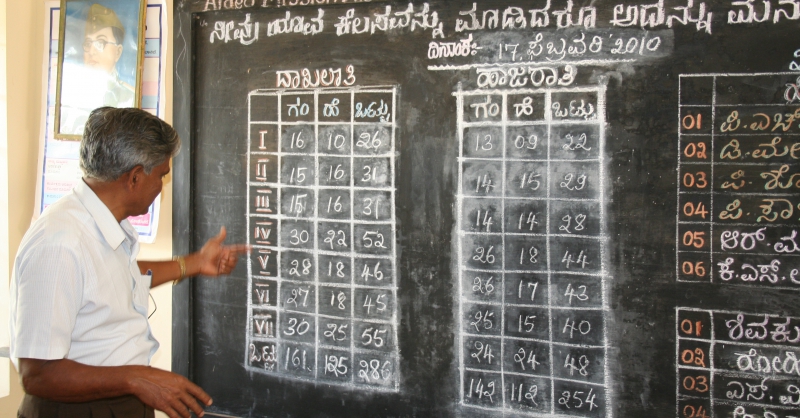 ನೀವು ಯಾವ ಕೆಲಸವನ್ನು ಮಾಡಿದಕೂ ಅದನ್ನು
ದಿನಾಂಕ:- 17, ಫೆಬ್ರವರಿ 2010
ದಾಖಲಾತಿ
ಗಂ ಹೆ ಒಟ್ಟು
I 16 10 26
II 15 16 31
III 15 16 31
IV 30 22 52
V 28 18 46
VI 27 18 45
VII 30 25 55
ಒಟ್ಟು 161 125 286
ಹಾಜರಾತಿ
ಗಂ ಹೆ ಒಟ್ಟು
13 09 22
14 15 29
14 14 28
26 18 44
26 17 43
25 15 40
24 24 48
142 112 254
01 ಪಿ.ಎಚ್
02 ಡಿ.ಮೇ
03 ಪಿ.ಶೋ
04 ಪಿ.ಸಾ
05 ಆರ್.ಮ
06 ಕೆ.ಎಸ್.
01 ಶಿವಕು
02 ರೋಗಿ
03 ಎಸ್.ವಿ
04